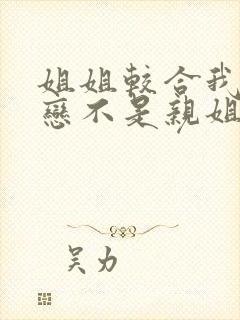 姐姐較合我
戀不是親姐
吴力